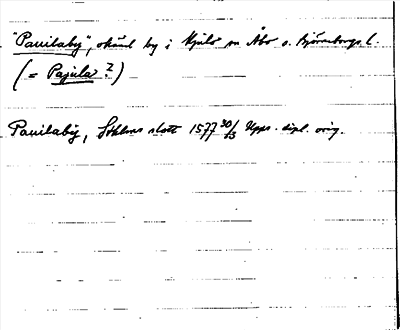 "Pauilaby", okänd by i Kjulo sn Åbo o. Björneborgs l.
(= Pajula?)
Pauilaby, Sthlms slott 1577 30/3 Upps. dipl. orig.